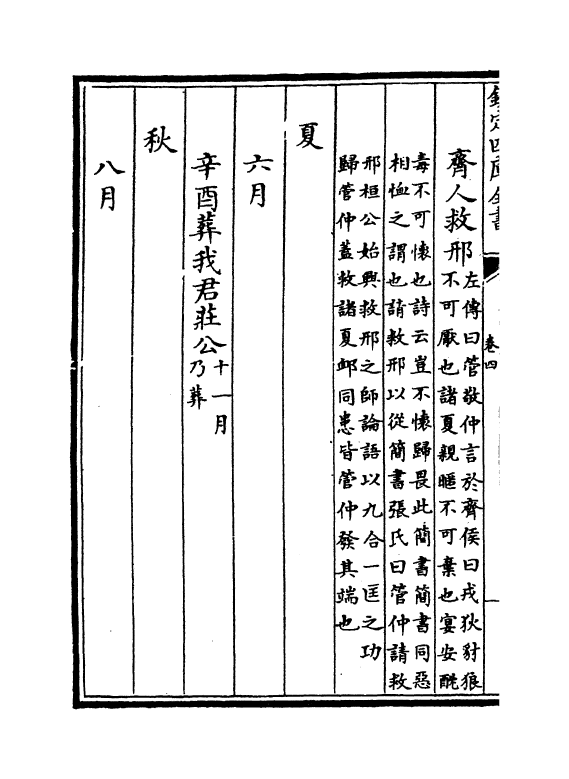 欽定四庫全書
卷四
齊人救邢
左傳曰管敬仲言於齊侯曰戎狄豺狼
不可厭也諸夏親暱不可棄也宴安酖
毒不可懷也詩云豈不懷歸畏此簡書簡書同惡
相恤之謂也請救邢以從簡書張氏曰管仲請救
邢桓公始興救邢之師論語以九合一匡之功
歸管仲蓋救諸夏卹同患皆管仲發其端也
夏
六月
辛酉葬我君莊公
十一月
乃葬
秋
八月